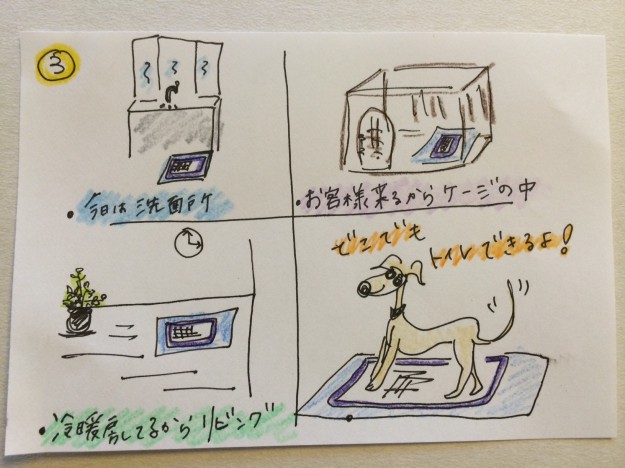 3
・今日は洗面所
・お客様来るからケージの中
・冷暖房してるからリビング
どこでも
トイレできるよ!